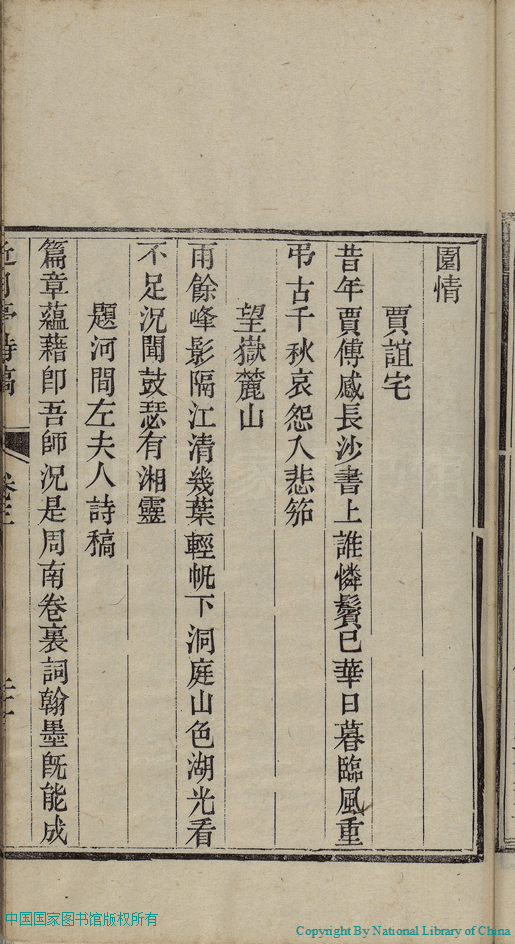 園情
賈誼宅
昔年賈傅感長沙書上誰憐鬢已華日暮臨風重
弔古千秋哀怨入悲笳
望嶽麓山
雨餘峰影隔江清幾葉輕帆下洞庭山色湖光看
不足況聞鼓瑟有湘靈
題河間左夫人詩稿
篇章蘊藉卽吾師況是周南卷裏詞翰墨旣能成
中国国家图书馆版权所有
Copyright By National Library of China